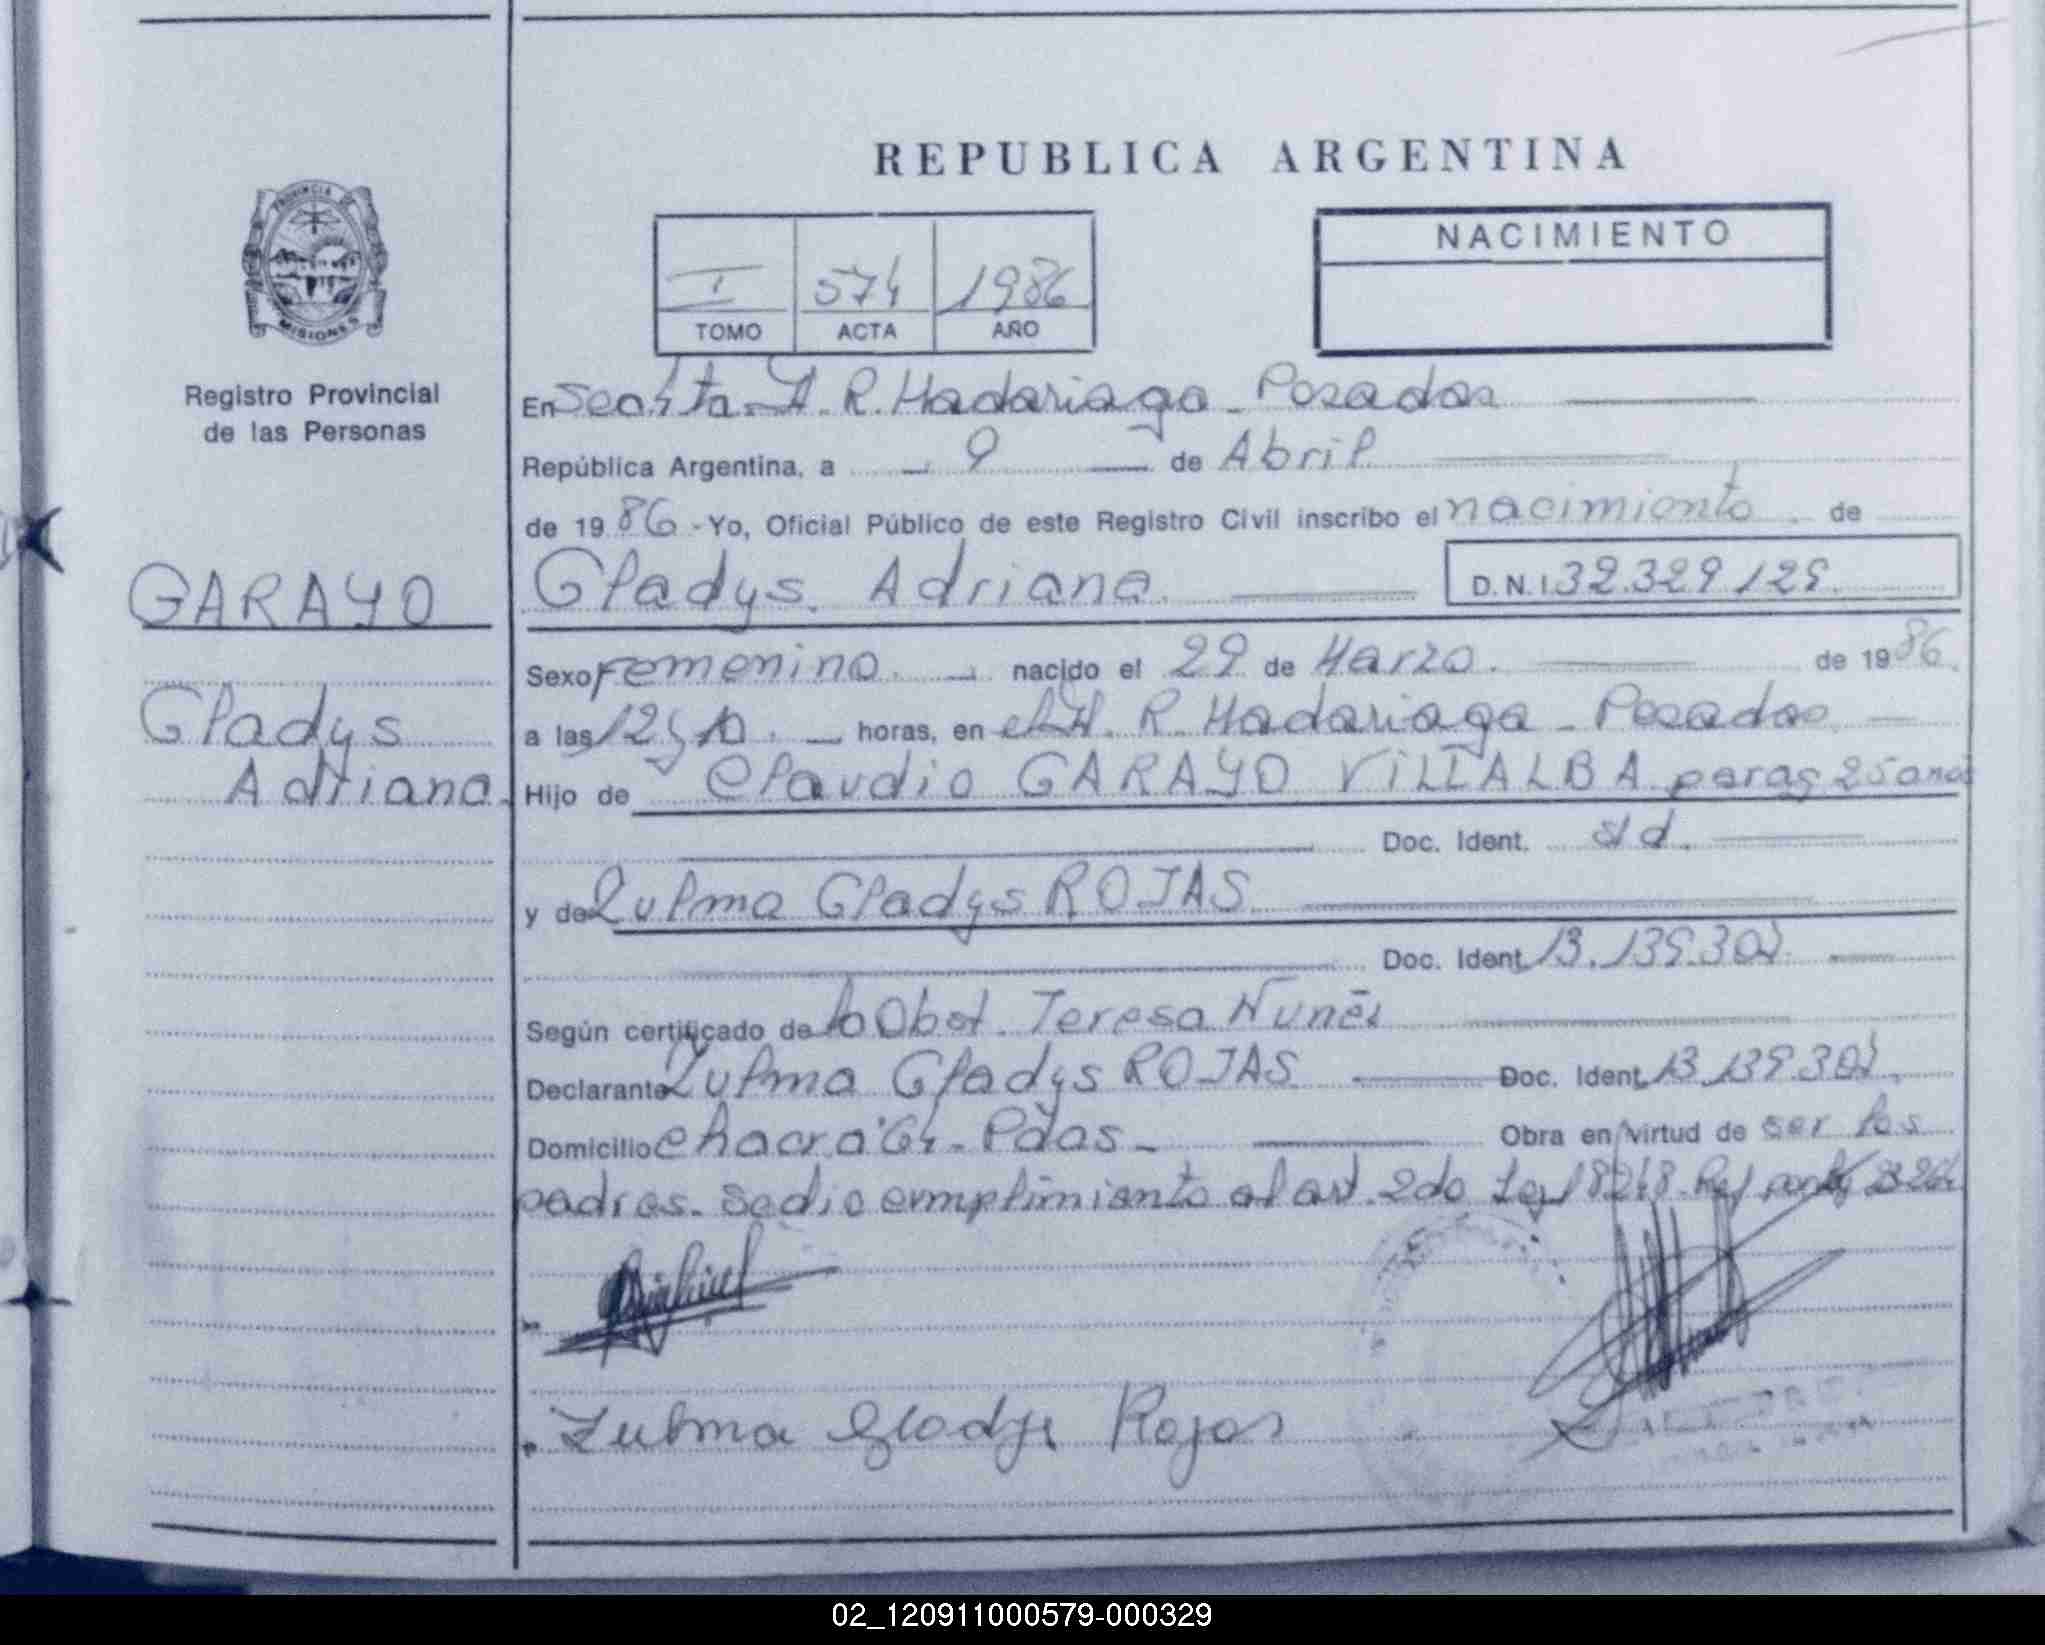 REPUBLICA ARGENTINA
PROVINCIA DE
MISIONES
Registro Provincial
de las Personas
NACIMIENTO
I 574 1986
TOMO ACTA AÑO
En H. R. Madariaga - Posadas
República Argentina, a 9 de Abril
de 1986 - Yo, Oficial Público de este Registro Civil inscribo el nacimiento de
GARAYO
Gladys Adriana D.N.I. 32.329.129
Sexo Femenino nacido el 29 de Marzo de 1986.
Gladys
Adriana.
a las 12 y 10 horas, en el H. R. Madariaga - Posadas
Hijo de Claudio GARAYO VILLALBA parag 25 años
Doc. Ident. s/d.
y de Zulma Gladys ROJAS
Doc. Ident. 13.139.302
Según certificado de la Obst. Teresa Nunēs
Declarante Zulma Gladys ROJAS Doc. Ident. 13.139.302.
Domicilio chacra 64 - Pdas - Obra en virtud de ser los
padres. Se dio cumplimiento al art. 2do Ley 18248.
Zulma Gladys Rojas
02_120911000579-000329